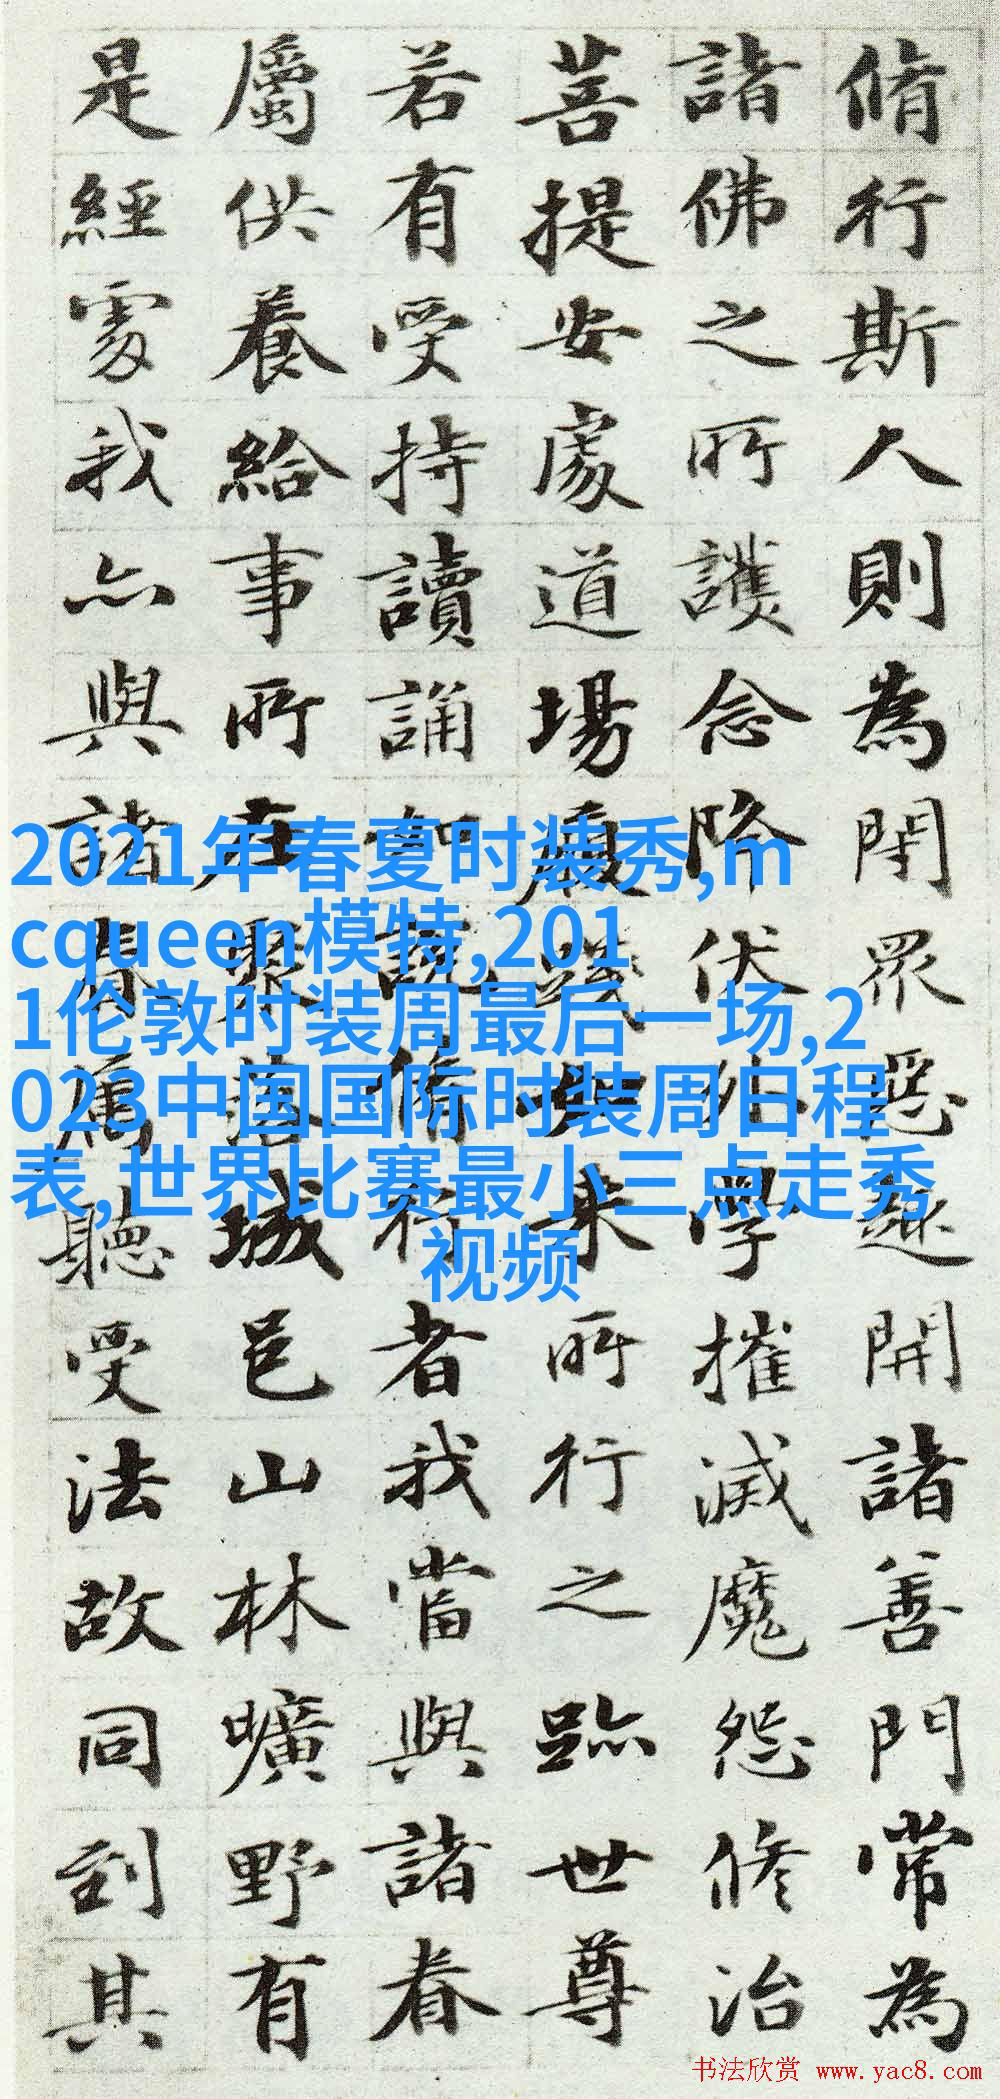 脩行斯人則為閇眾惡趣開諸善門常為
諸佛之所護念降伏外學摧滅魔怨修治
菩提安處道場履踐如來所行之跡世尊
若有受持讀誦如說脩行者我當與諸眷
屬供養給事所在聚落城邑山林曠野有
是經處我亦與諸眷屬聽受法故同到其
2021年春夏时装秀,m
cqueen模特,201
1伦敦时装周最后一场,2
023中国国际时装周日程
表,世界比赛最小三点走秀
视频
书法欣赏 www.yac8.com